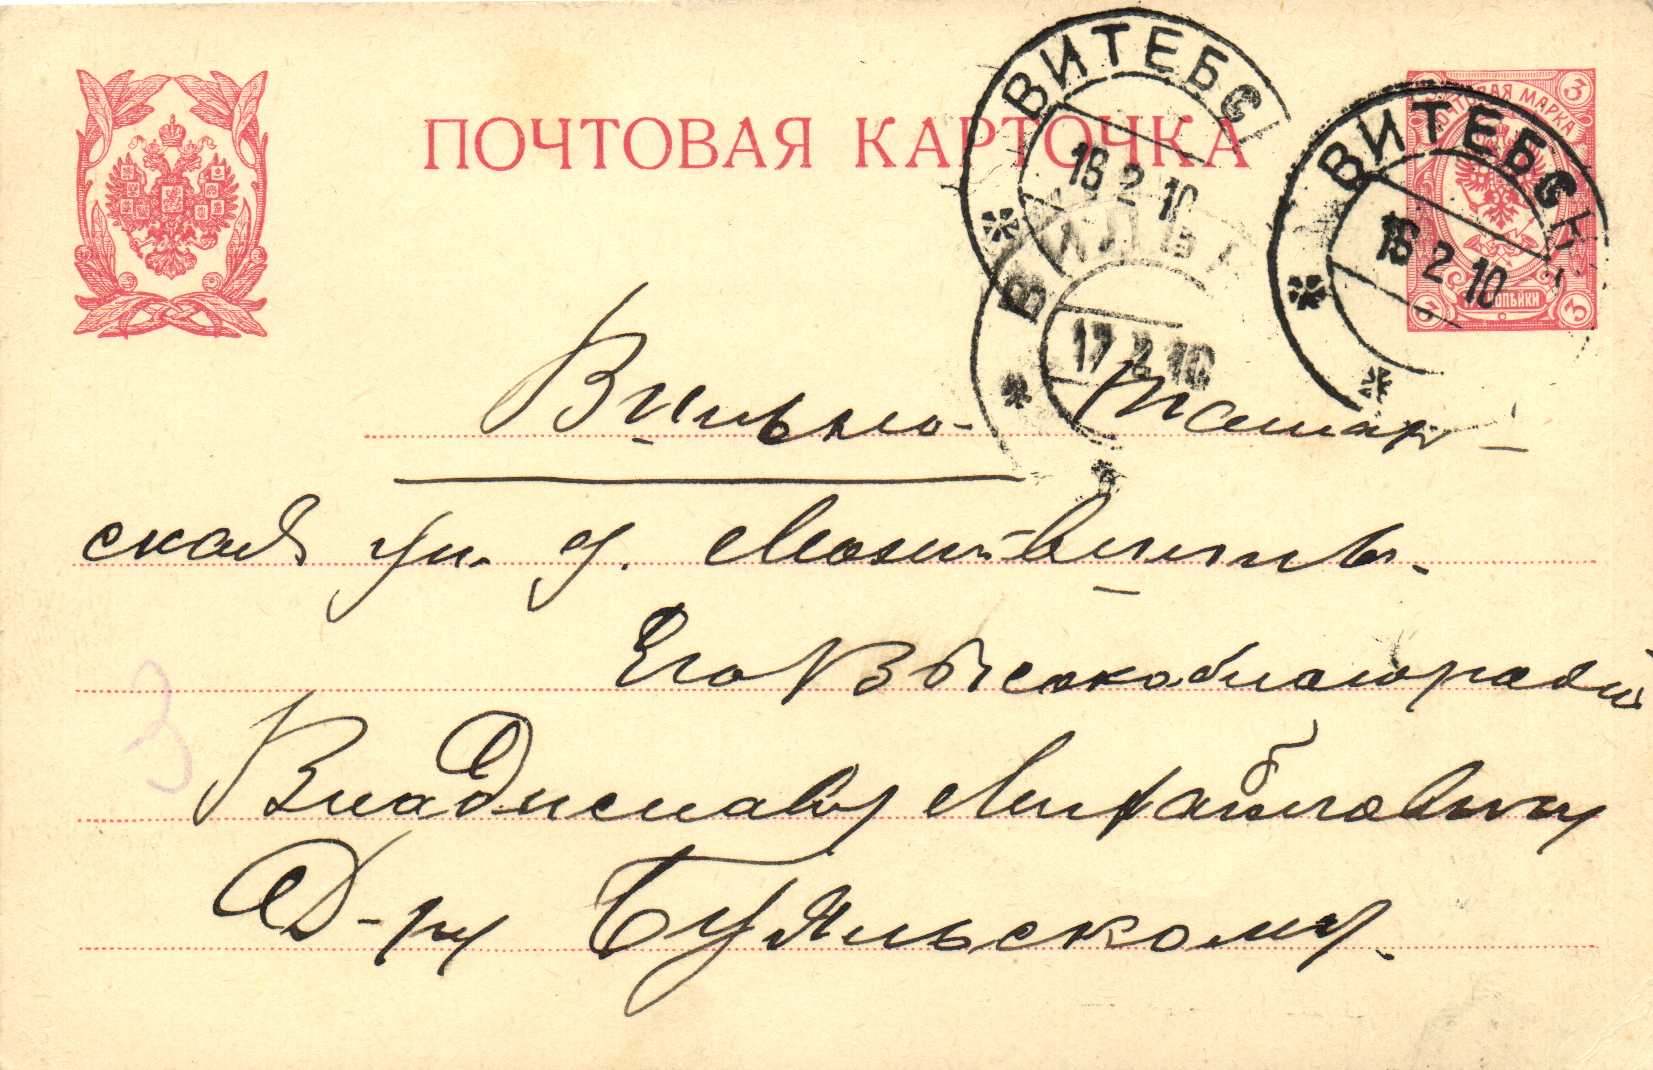 ПОЧТОВАЯ КАРТОЧКА
ПОЧТОВАЯ МАРКА
3 3
КОПѢЙКИ
3 3
ВИТЕБСК
16 2 10
ВИТЕБСК
16 2 10
ВИЛЬН
17 2 10
Вильно.
ская ул. д.
Его Высокоблагородiю
Владиславу Михайловичу
Д-ру Буяльскому.
3